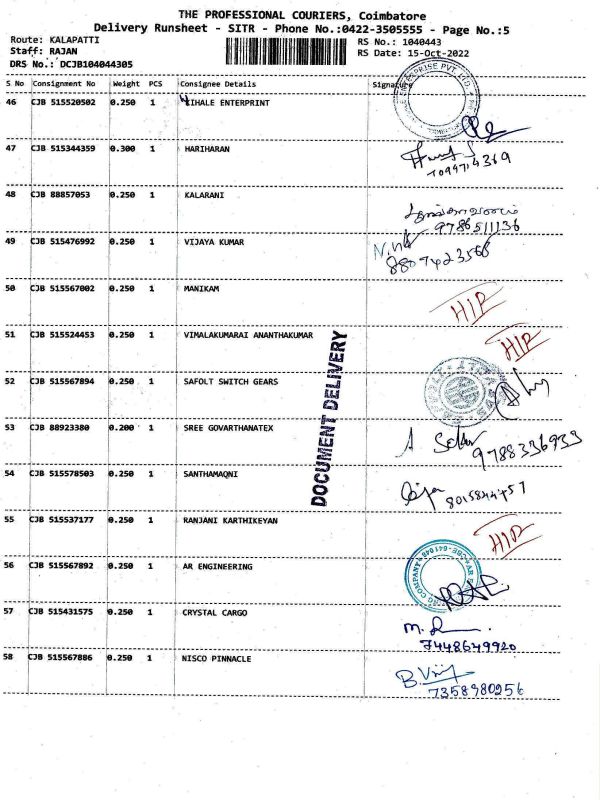 THE PROFESSIONAL COURIERS, Coimbatore
Delivery Runsheet - SITR - Phone No.:0422-3505555 - Page No.:5
Route: KALAPATTI
RS No.: 1040443
Staff: RAJAN
RS Date: 15-Oct-2022
DRS No.: DCJB104044305
S No Consignment No Weight PCS Consignee Details Signature
46 CJB 515520502 0.250 1 NIHALE ENTERPRINT
47 CJB 515344359 0.300 1 HARIHARAN
48 CJB 88857053 0.250 1 KALARANI
9786511136
49 CJB 515476992 0.250 1 VIJAYA KUMAR
50 CJB 515567002 0.250 1 MANIKAM
HIP
51 CJB 515524453 0.250 1 VIMALAKUMARAI ANANTHAKUMAR
HIP
DOCUMENT DELIVERY
52 CJB 515567894 0.250 1 SAFOLT SWITCH GEARS
53 CJB 88923380 0.200 1 SREE GOVARTHANATEX
9788336933
54 CJB 515578503 0.250 1 SANTHAMAQNI
55 CJB 515537177 0.250 1 RANJANI KARTHIKEYAN
HIP
56 CJB 515567892 0.250 1 AR ENGINEERING
57 CJB 515431575 0.250 1 CRYSTAL CARGO
7448649920
58 CJB 515567886 0.250 1 NISCO PINNACLE
7358980256